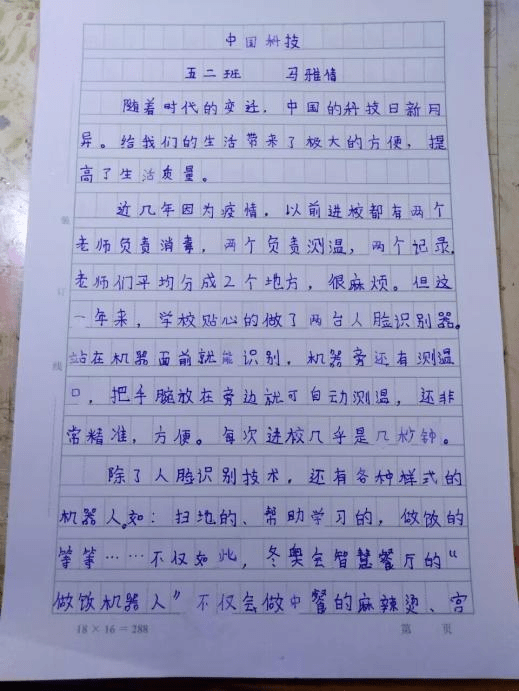 中国科技
五二班 马雅倩
随着时代的变迁，中国的科技日新月
异。给我们的生活带来了极大的方便，提
高了生活质量。
近几年因为疫情，以前进校都有两个
老师负责消毒，两个负责测温，两个记录，
老师们平均分成2个地方，很麻烦。但这
一年来，学校贴心的做了两台人脸识别器。
站在机器面前就能识别，机器旁还有测温
口，把手腕放在旁边就可自动测温，还非
常精准，方便。每次进校几乎是几秒钟。
除了人脸识别技术，还有各种样式的
机器人。如：扫地的、帮助学习的，做饭的
等等……不仅如此，冬奥会智慧餐厅的“
做饭机器人”不仅会做中餐的麻辣烫、宫
装
订
线
18×16=288 第 页